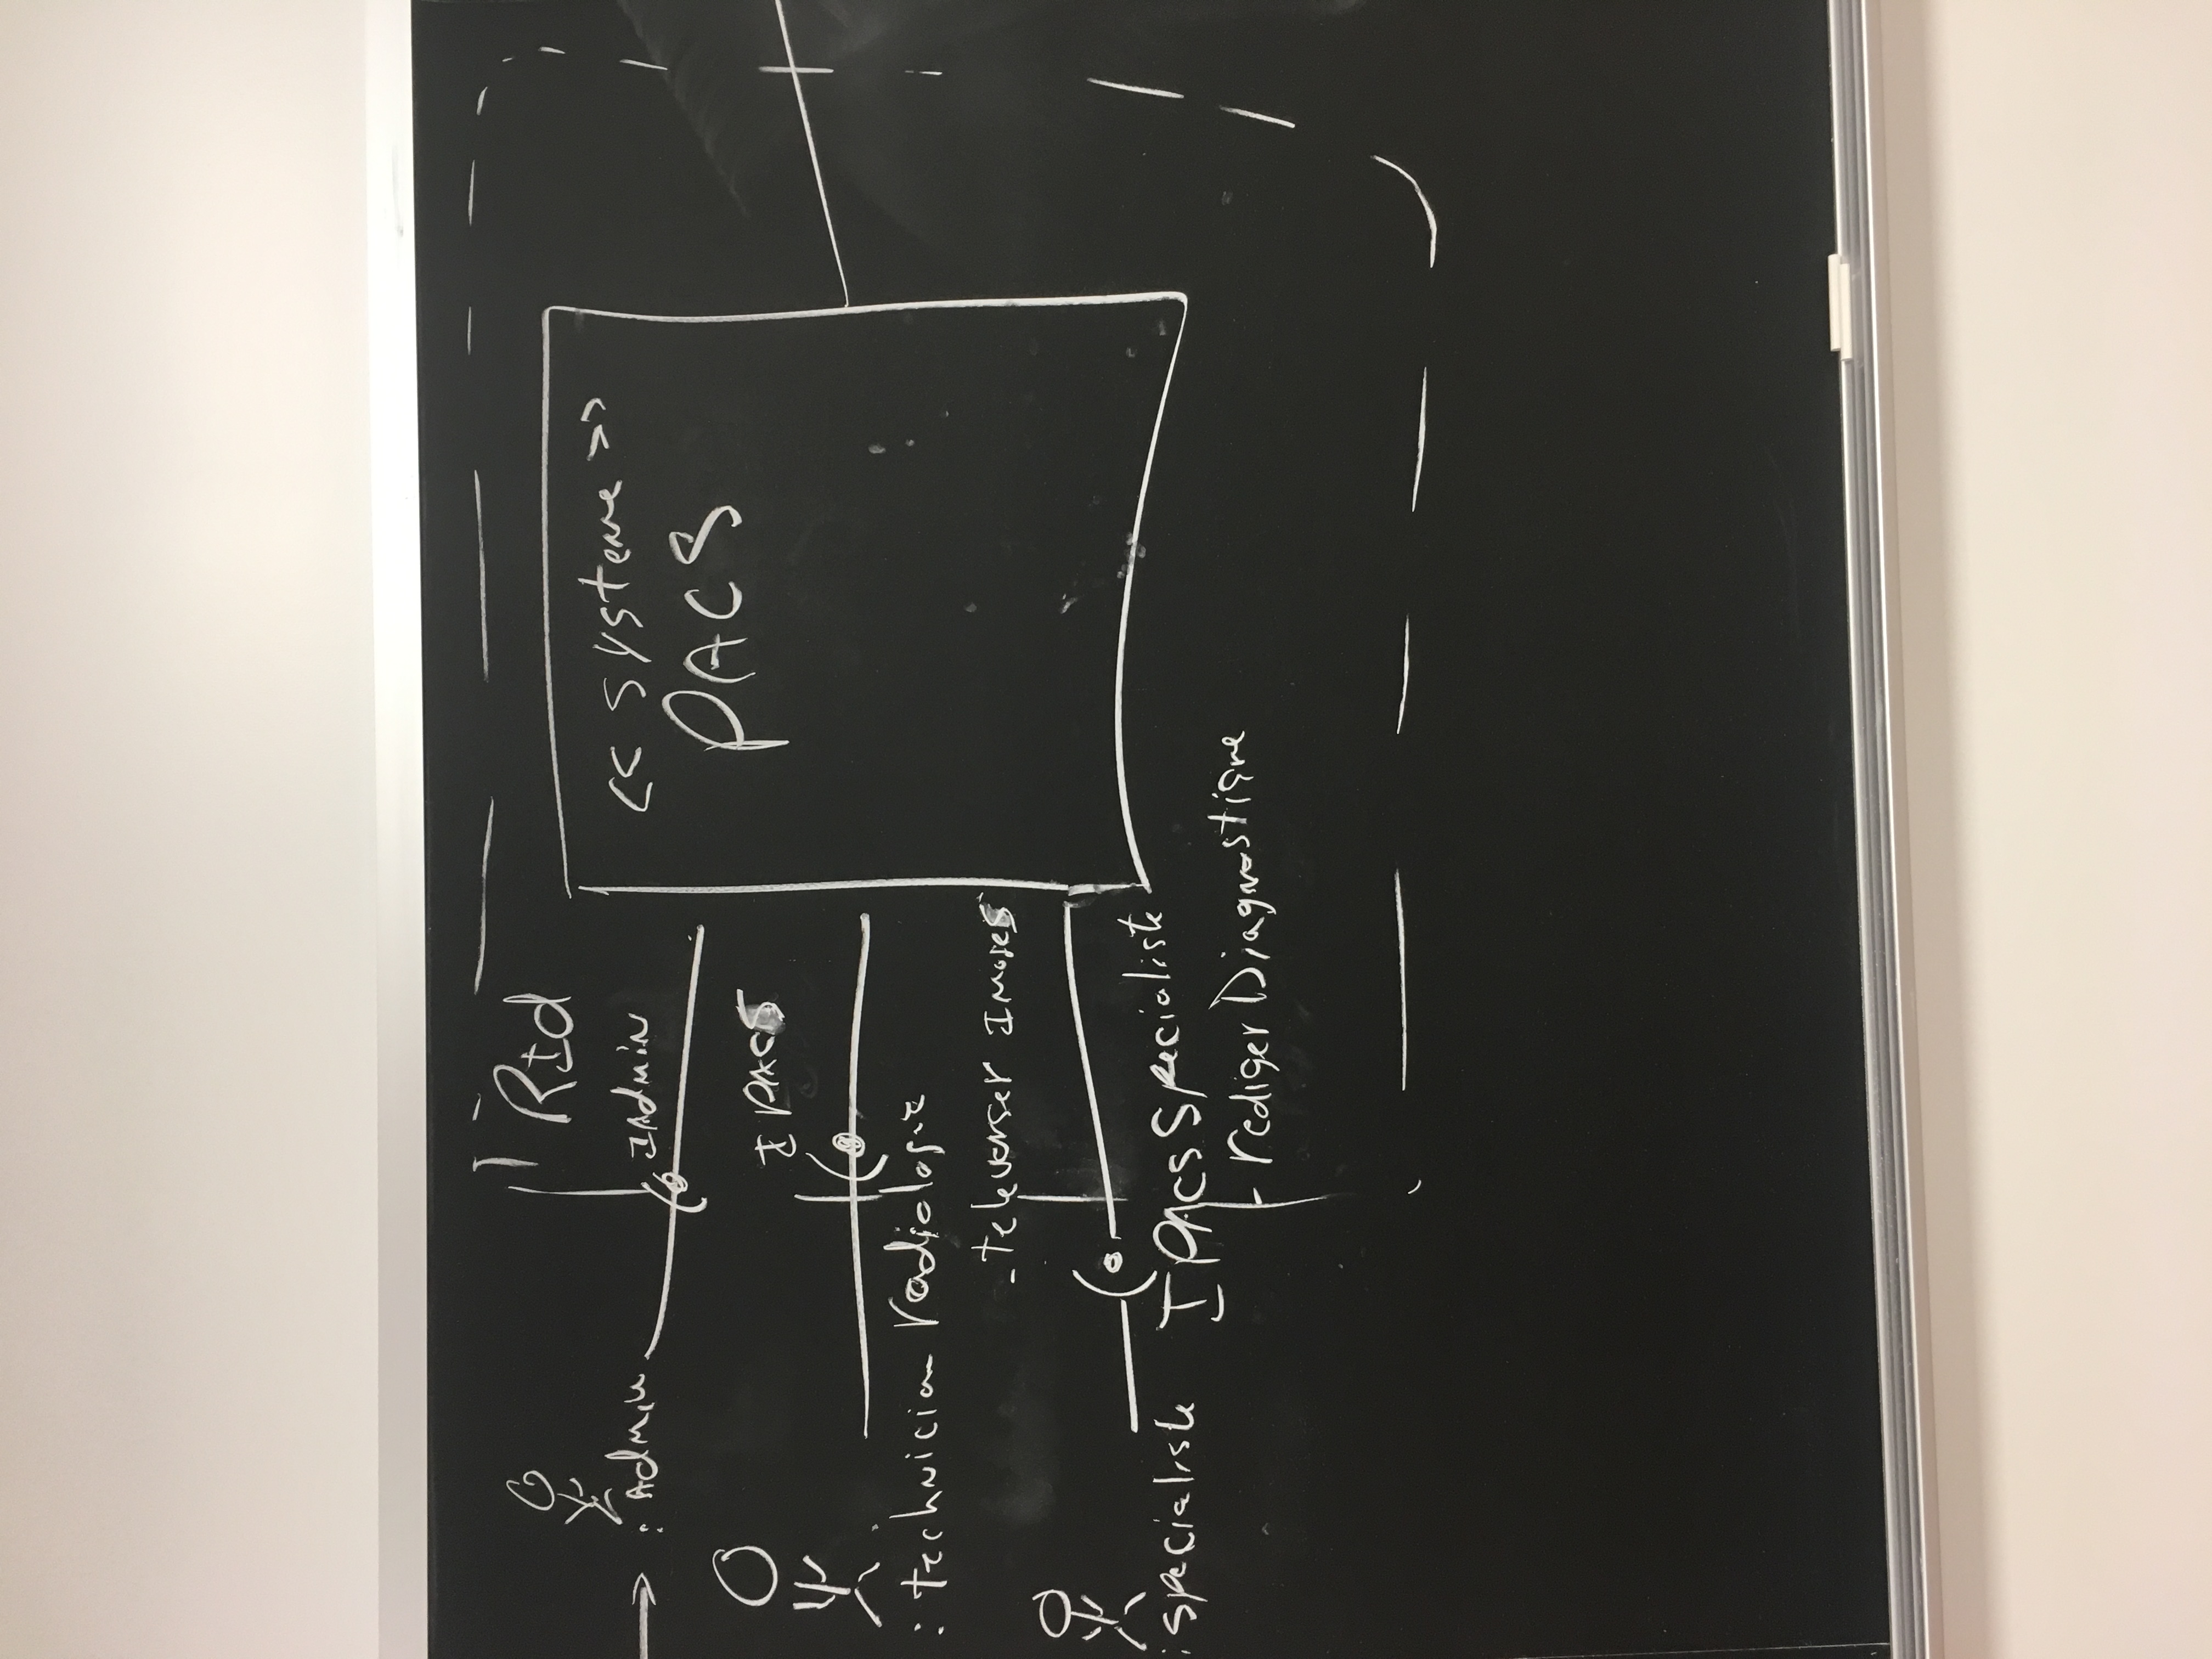 RId
<< systeme >>
PACS
: Admin
IAdmin
I PACS
: technician radiologie
- televerser Images
: specialiste
I PACS Specialiste
- rediger Diagnostique